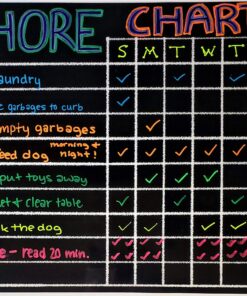 HORE CHART
S M T W T
aundry
e garbages to curb
mpty garbages
eed dog morning & night!
put toys away
et & clear table
k the dog
e - read 20 min.